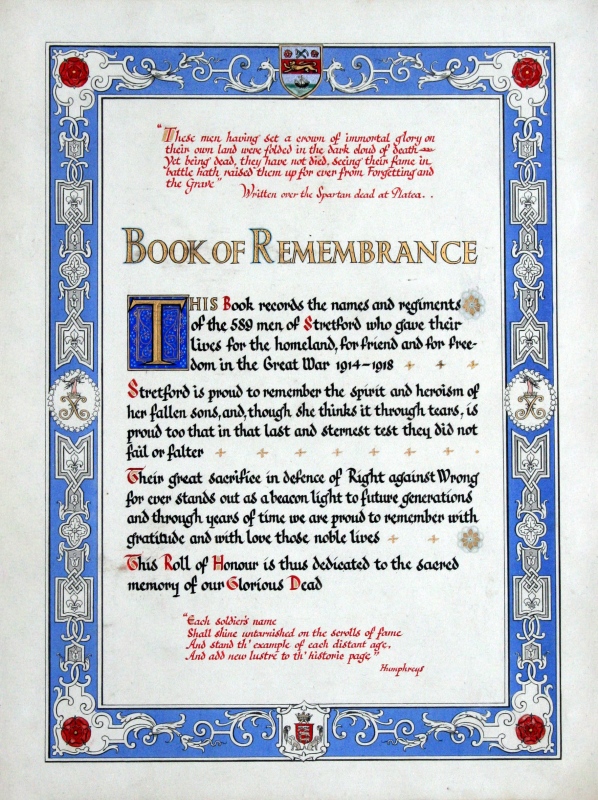 "These men having set a crown of immortal glory on
their own land were folded in the dark cloud of death
Yet being dead, they have not died, seeing their fame in
battle hath raised them up for ever from Forgetting and
the Grave"
Written over the Spartan dead at Platea..
BOOK OF REMEMBRANCE
THIS Book records the names and regiments
of the 589 men of Stretford who gave their
lives for the homeland, for friend and for free-
dom in the Great War 1914-1918
Stretford is proud to remember the spirit and heroism of
her fallen sons, and, though she thinks it through tears, is
proud too that in that last and sternest test they did not
fail or falter
Their great sacrifice in defence of Right against Wrong
for ever stands out as a beacon light to future generations
and through years of time we are proud to remember with
gratitude and with love those noble lives
This Roll of Honour is thus dedicated to the sacred
memory of our Glorious Dead
"Each soldier's name
Shall shine untarnished on the scrolls of fame
And stand th' example of each distant age,
And add new lustre to th' historic page"
Humphreys